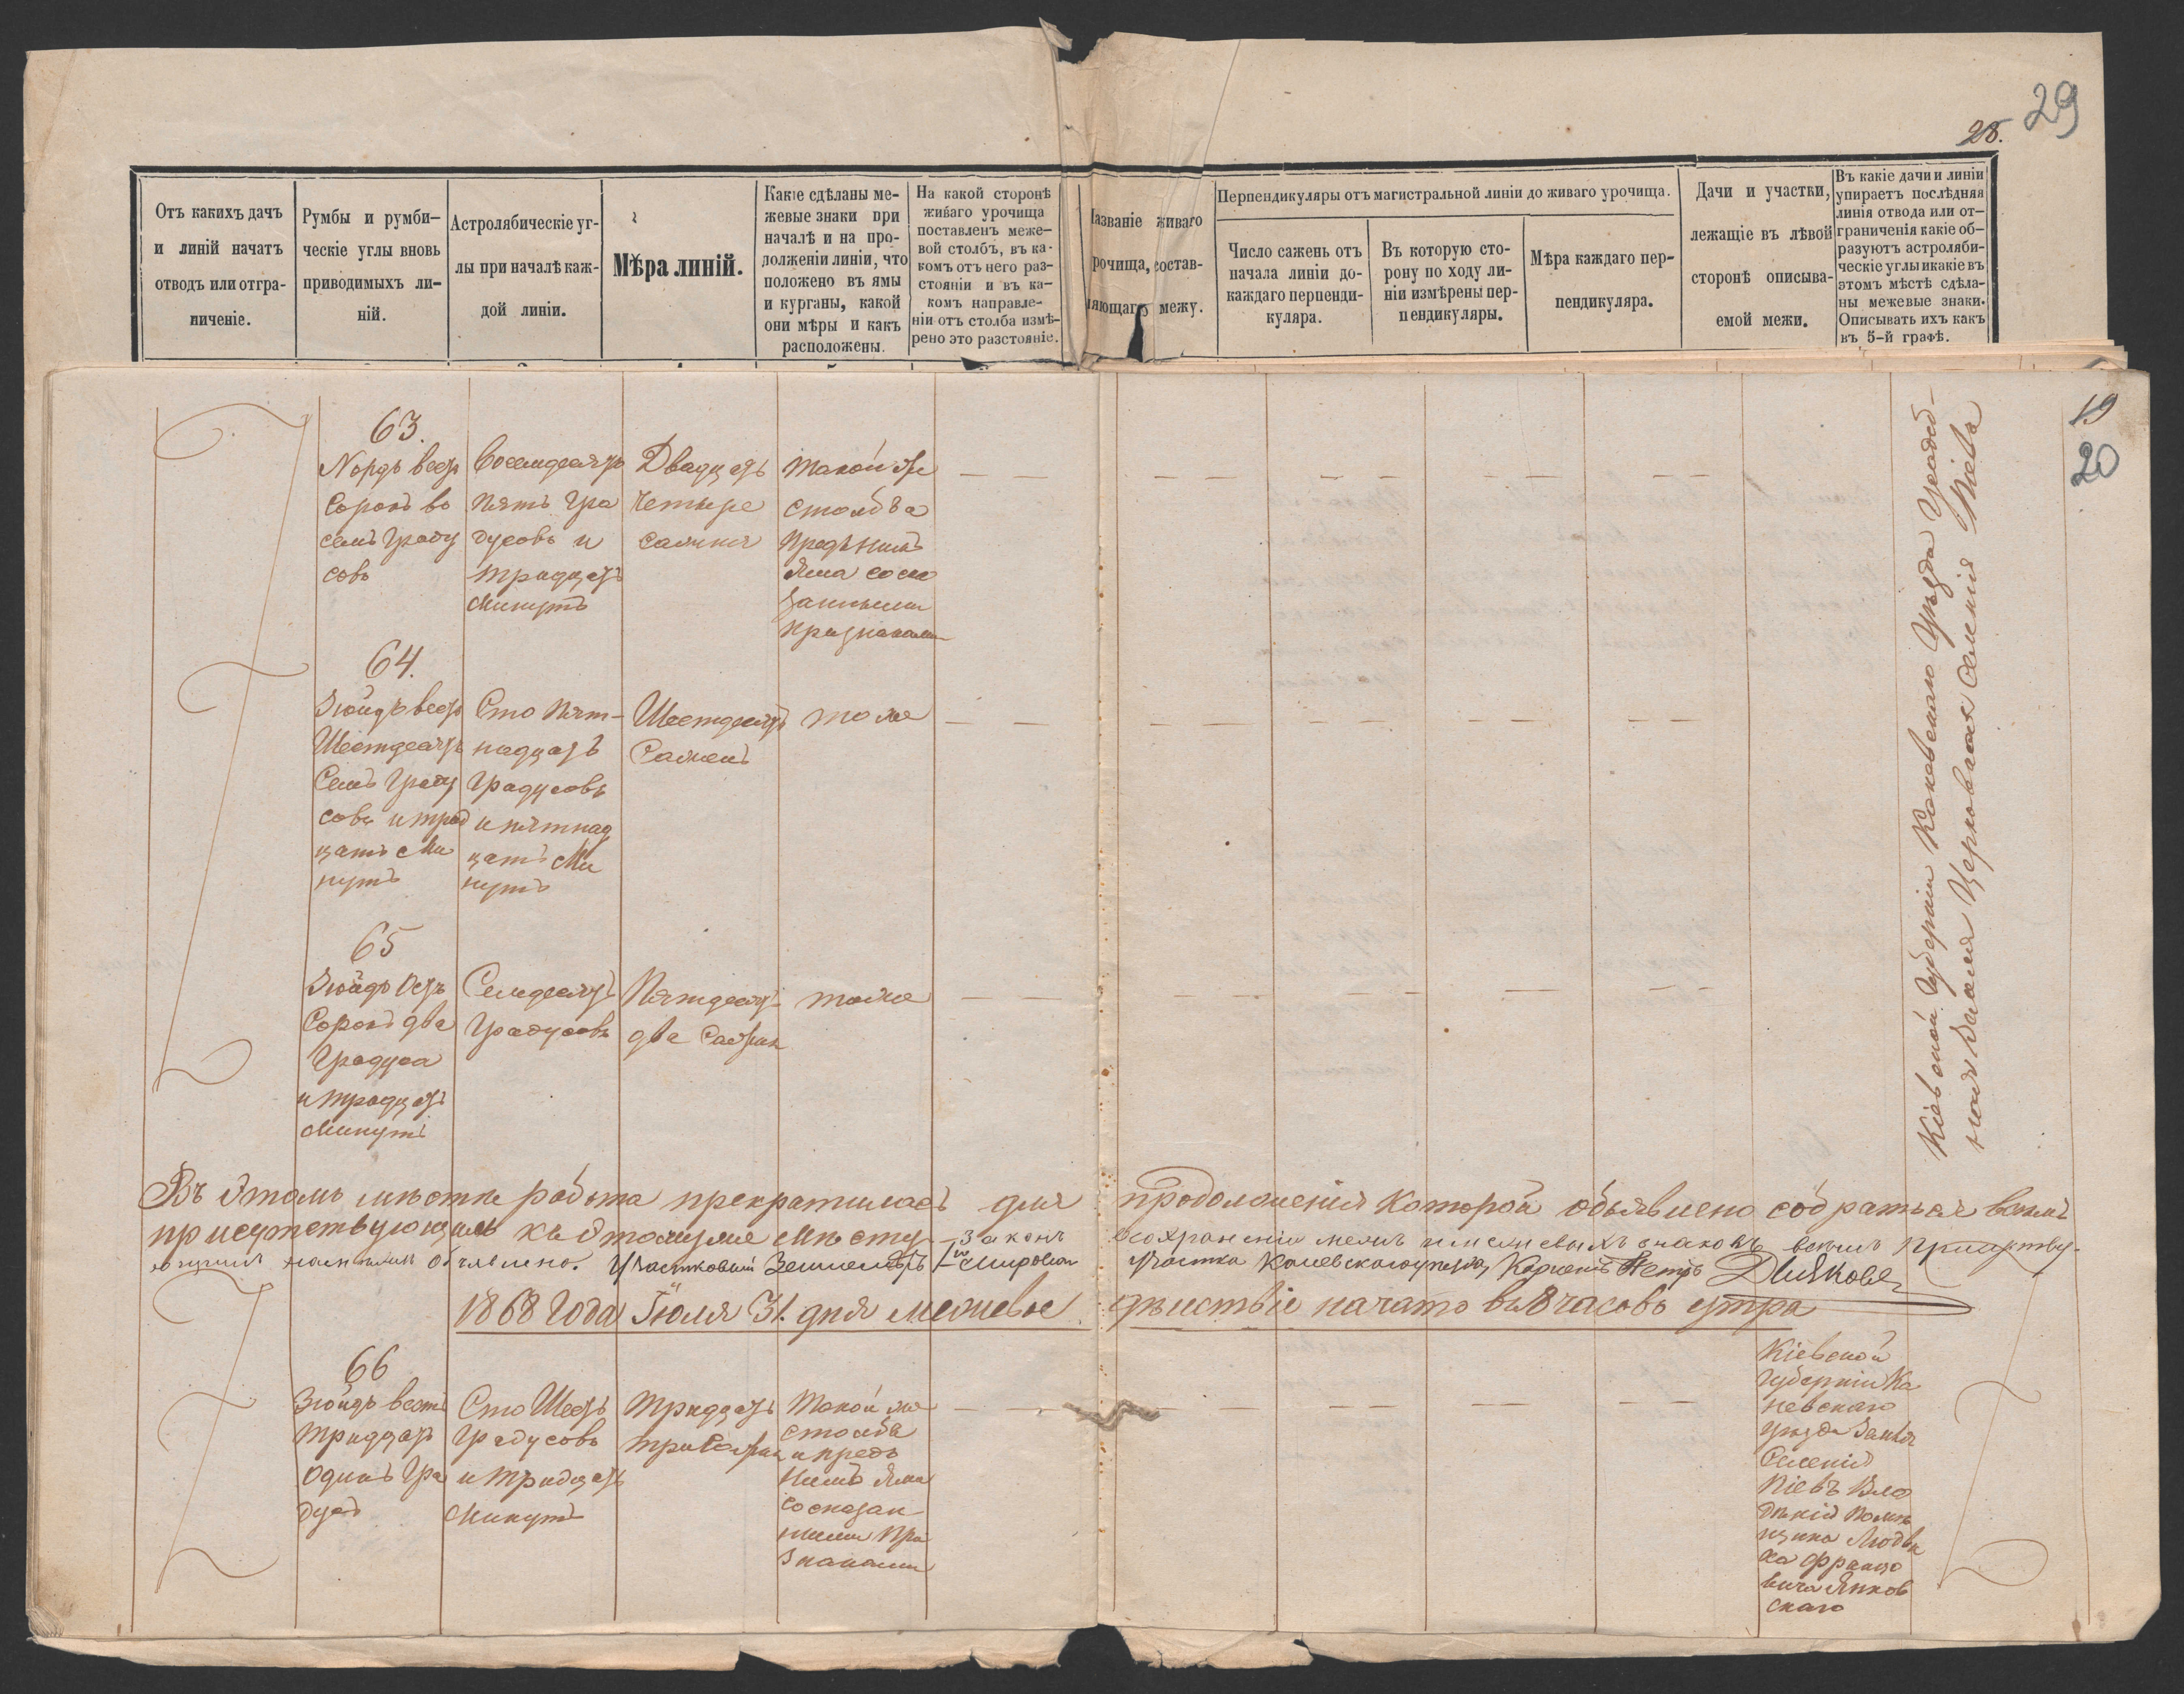 29
28.
Отъ какихъ дачъ
и линій начатъ
отводъ или отгра-
ниченіе.
Румбы и румби-
ческіе углы вновь
приводимыхъ ли-
ній.
Астролябическіе уг-
лы при началѣ каж-
дой линіи.
Мѣра линій.
Какіе сдѣланы ме-
жевые знаки при
началѣ и на про-
долженіи линіи, что
положено въ ямы
и курганы, какой
они мѣры и какъ
расположены.
На какой сторонѣ
живаго урочища
поставленъ меже-
вой столбъ, въ ка-
комъ отъ него раз-
стояніи и въ ка-
комъ направле-
ніи отъ столба измѣ-
рено это разстояніе.
Названіе живаго
рочища, состав-
ляющаго межу.
Перпендикуляры отъ магистральной линіи до живаго урочища.
Число сажень отъ
начала линіи до
каждаго перпенди-
куляра.
Въ которую сто-
рону по ходу ли-
ніи измѣрены пер-
пендикуляры.
Мѣра каждаго пер-
пендикуляра.
Дачи и участки,
лежащіе въ лѣвой
сторонѣ описыва-
емой межи.
Въ какіе дачи и линіи
упираетъ послѣдняя
линія отвода или от-
граниченія какіе об-
разуютъ астроляби-
ческіе углы и какіе въ
этомъ мѣстѣ сдѣла-
ны межевые знаки.
Описывать ихъ какъ
въ 5-й графѣ.
19
20
63.
Нордъ вестъ
Сорокъ во
семь Граду
совъ
Восемдесятъ
пять Гра
дусовъ и
тридцать
минутъ
Двадцать
Четыре
сажня
такой же
столбъ а
предъ нимъ
яма со ска
занными
признаками
64.
Зюйдъ вестъ
Шестдесятъ
Семь Граду
совъ и трид
цать Ми
нутъ
Сто Пят-
надцать
Градусовъ
и пятнад
цать Ми
нутъ
Шестдесятъ
Саженъ
тоже
65
Зюйдъ Остъ
Сорокъ два
Градуса
и тридцать
минутъ
Семдесятъ
Градусовъ
Пятдесятъ
два Сажня
тоже
Кіевской Губерніи Каневскаго Уѣзда Усадеб-
ная Земля Церковная Селенія Пiевъ
Въ этомъ мѣстѣ работа прекратилась для продолженія которой объявлено собраться всѣмъ
присутствующимъ къ этому же мѣсту – законъ о сохраненіи межъ и межевыхъ знаковъ всѣмъ присутству-
ющимъ объявлено. Участковый Землемѣръ 1го Мироваго Участка Каневскаго уѣзда Петръ Дьяковъ
1868 года Іюля 31. дня межевое дѣйствіе начато въ 8 часовъ утра
66
Зюйдъ вестъ
Тридцать
Одинъ Гра
дусъ
Сто Шесть
Градусовъ
и тридцать
Минутъ
Тридцать
три Сажня
Такой же
столбъ
и предъ
Нимъ Яма
со сказан
ными При
знаками
Кіевской
Губерніи Ка
невскаго
уѣзда Земля
Селенія
Піевъ Вла
дѣній Помѣ
щика Людви
ка Францо
вича Янков
скаго